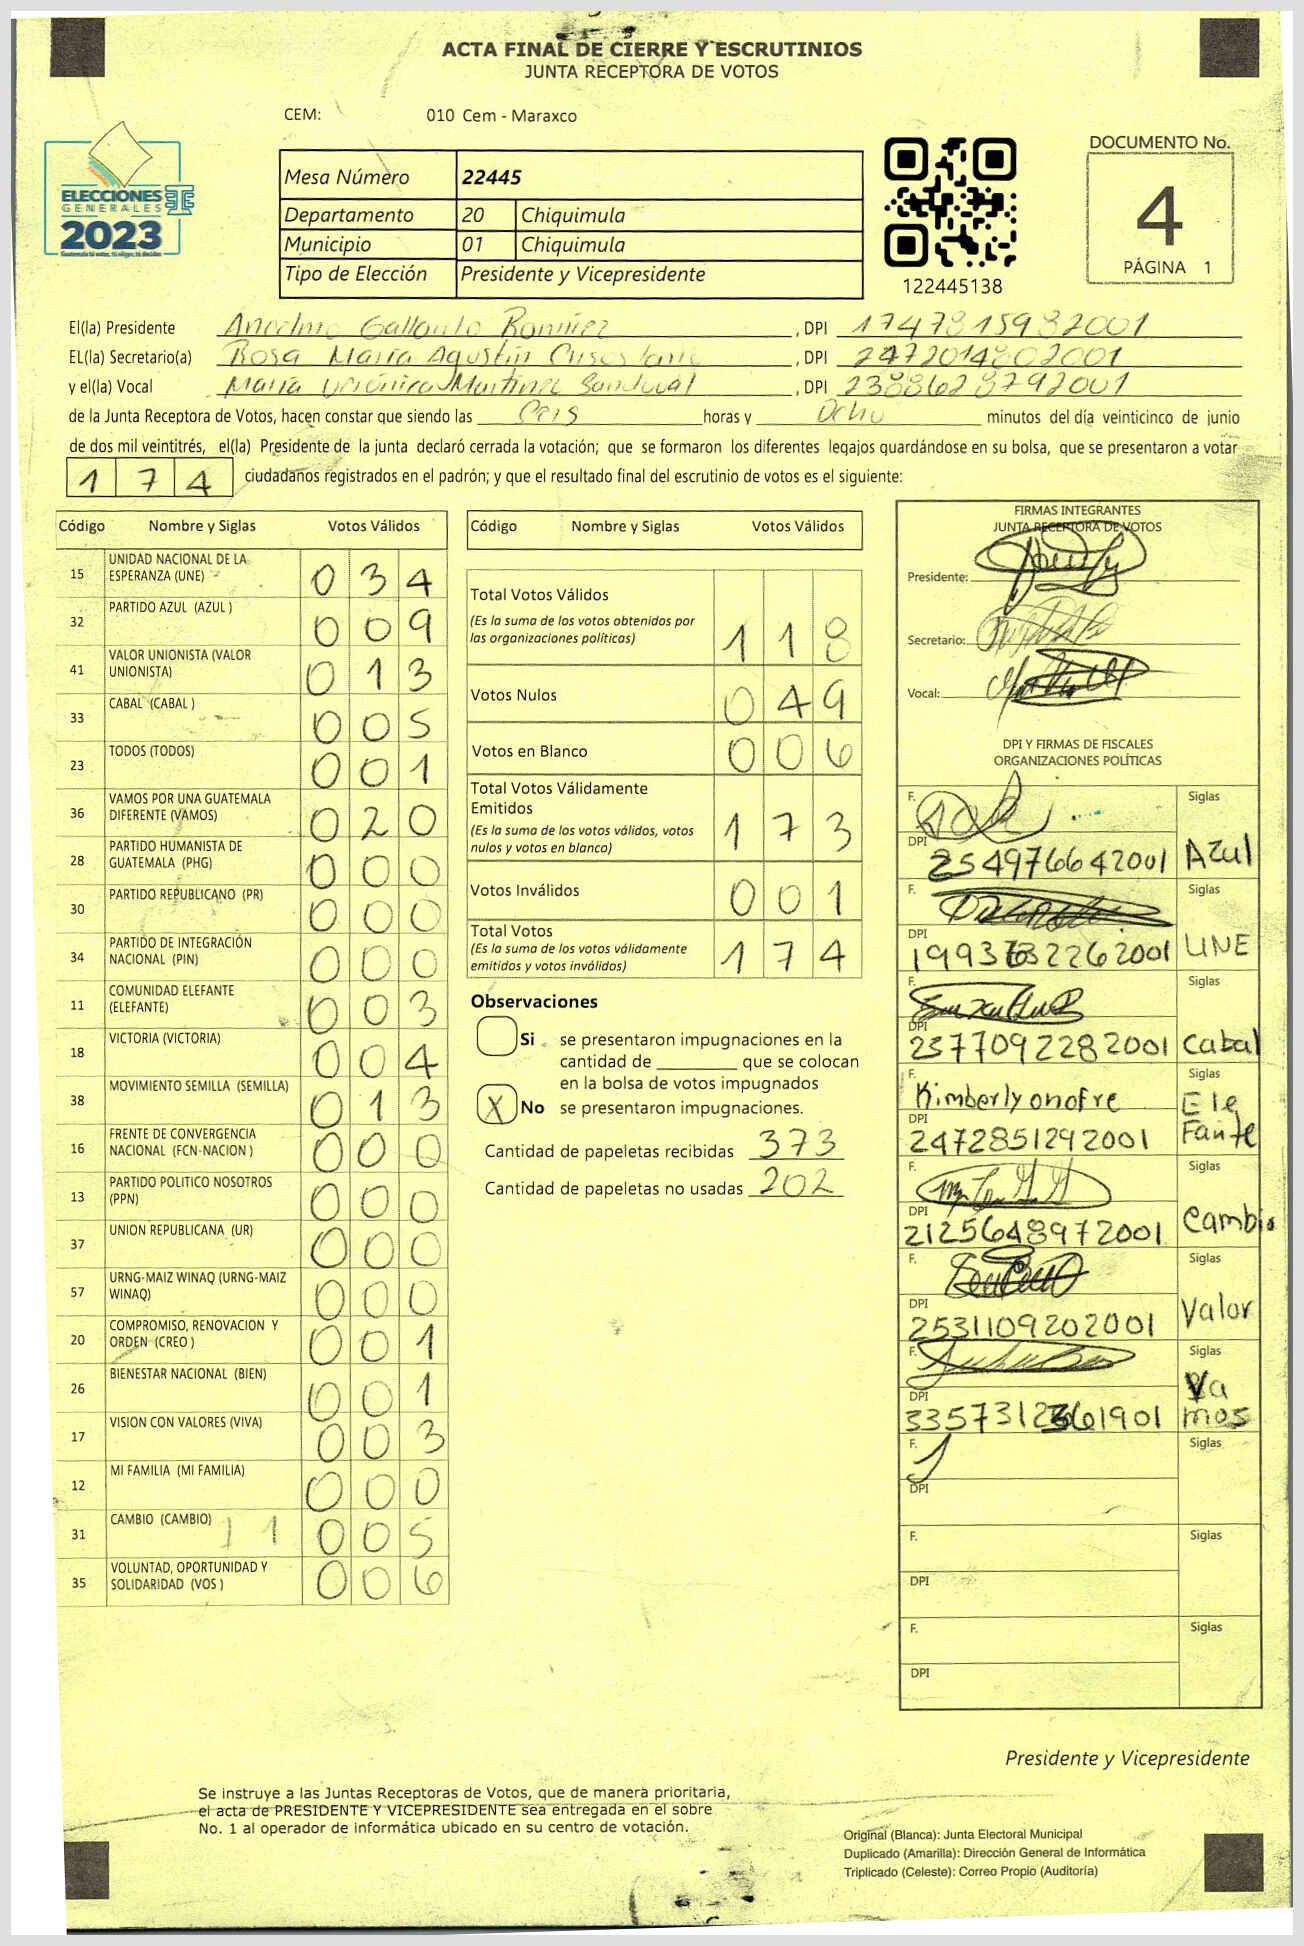 ACTA FINAL DE CIERRE Y ESCRUTINIOS
JUNTA RECEPTORA DE VOTOS
CEM: 010 Cem - Maraxco
ELECCIONES
GENERALES
2023
Mesa Número 22445
Departamento 20 Chiquimula
Municipio 01 Chiquimula
Tipo de Elección Presidente y Vicepresidente
122445138
DOCUMENTO No.
4
PÁGINA 1
El(la) Presidente Anselmo Gallardo Ramírez , DPI 1747815982001
EL(la) Secretario(a) Rosa María Agustín , DPI 2472014802001
y el(la) Vocal María Verónica Martínez Sandoval , DPI 2388628792001
de la Junta Receptora de Votos, hacen constar que siendo las Ceis horas y Ocho minutos del día veinticinco de junio
de dos mil veintitrés, el(la) Presidente de la junta declaró cerrada la votación; que se formaron los diferentes legajos quardándose en su bolsa, que se presentaron a votar
1 7 4 ciudadanos registrados en el padrón; y que el resultado final del escrutinio de votos es el siguiente:
Código Nombre y Siglas Votos Válidos
15 UNIDAD NACIONAL DE LA ESPERANZA (UNE) 0 3 4
32 PARTIDO AZUL (AZUL ) 0 0 9
41 VALOR UNIONISTA (VALOR UNIONISTA) 0 1 3
33 CABAL (CABAL ) 0 0 5
23 TODOS (TODOS) 0 0 1
36 VAMOS POR UNA GUATEMALA DIFERENTE (VAMOS) 0 2 0
28 PARTIDO HUMANISTA DE GUATEMALA (PHG) 0 0 0
30 PARTIDO REPUBLICANO (PR) 0 0 0
34 PARTIDO DE INTEGRACIÓN NACIONAL (PIN) 0 0 0
11 COMUNIDAD ELEFANTE (ELEFANTE) 0 0 3
18 VICTORIA (VICTORIA) 0 0 4
38 MOVIMIENTO SEMILLA (SEMILLA) 0 1 3
16 FRENTE DE CONVERGENCIA NACIONAL (FCN-NACION ) 0 0 0
13 PARTIDO POLITICO NOSOTROS (PPN) 0 0 0
37 UNION REPUBLICANA (UR) 0 0 0
57 URNG-MAIZ WINAQ (URNG-MAIZ WINAQ) 0 0 0
20 COMPROMISO, RENOVACION Y ORDEN (CREO ) 0 0 1
26 BIENESTAR NACIONAL (BIEN) 0 0 1
17 VISION CON VALORES (VIVA) 0 0 3
12 MI FAMILIA (MI FAMILIA) 0 0 0
31 CAMBIO (CAMBIO) 1 1 0 0 5
35 VOLUNTAD, OPORTUNIDAD Y SOLIDARIDAD (VOS ) 0 0 6
Código Nombre y Siglas Votos Válidos
Total Votos Válidos 1 1 8
(Es la suma de los votos obtenidos por
las organizaciones políticas)
Votos Nulos 0 4 9
Votos en Blanco 0 0 6
Total Votos Válidamente
Emitidos 1 7 3
(Es la suma de los votos válidos, votos
nulos y votos en blanco)
Votos Inválidos 0 0 1
Total Votos 1 7 4
(Es la suma de los votos válidamente
emitidos y votos inválidos)
Observaciones
Si se presentaron impugnaciones en la
cantidad de ________ que se colocan
en la bolsa de votos impugnados
X No se presentaron impugnaciones.
Cantidad de papeletas recibidas 373
Cantidad de papeletas no usadas 202
FIRMAS INTEGRANTES
JUNTA RECEPTORA DE VOTOS
Presidente:
Secretario:
Vocal:
DPI Y FIRMAS DE FISCALES
ORGANIZACIONES POLÍTICAS
F. Siglas
DPI 254976642001 Azul
F. Siglas
DPI UNE
F. Siglas
DPI 2377092282001 Cabal
F. Kimberly onofre Siglas
DPI 2472851292001 Ele Fante
F. Siglas
DPI 2125648972001 Cambio
F. Siglas
DPI 2531109202001 Valor
F. Siglas
DPI Vamos
F. Siglas
DPI
F. Siglas
DPI
F. Siglas
DPI
Presidente y Vicepresidente
Se instruye a las Juntas Receptoras de Votos, que de manera prioritaria,
el acta de PRESIDENTE Y VICEPRESIDENTE sea entregada en el sobre
No. 1 al operador de informática ubicado en su centro de votación.
Original (Blanca): Junta Electoral Municipal
Duplicado (Amarilla): Dirección General de Informática
Triplicado (Celeste): Correo Propio (Auditoría)